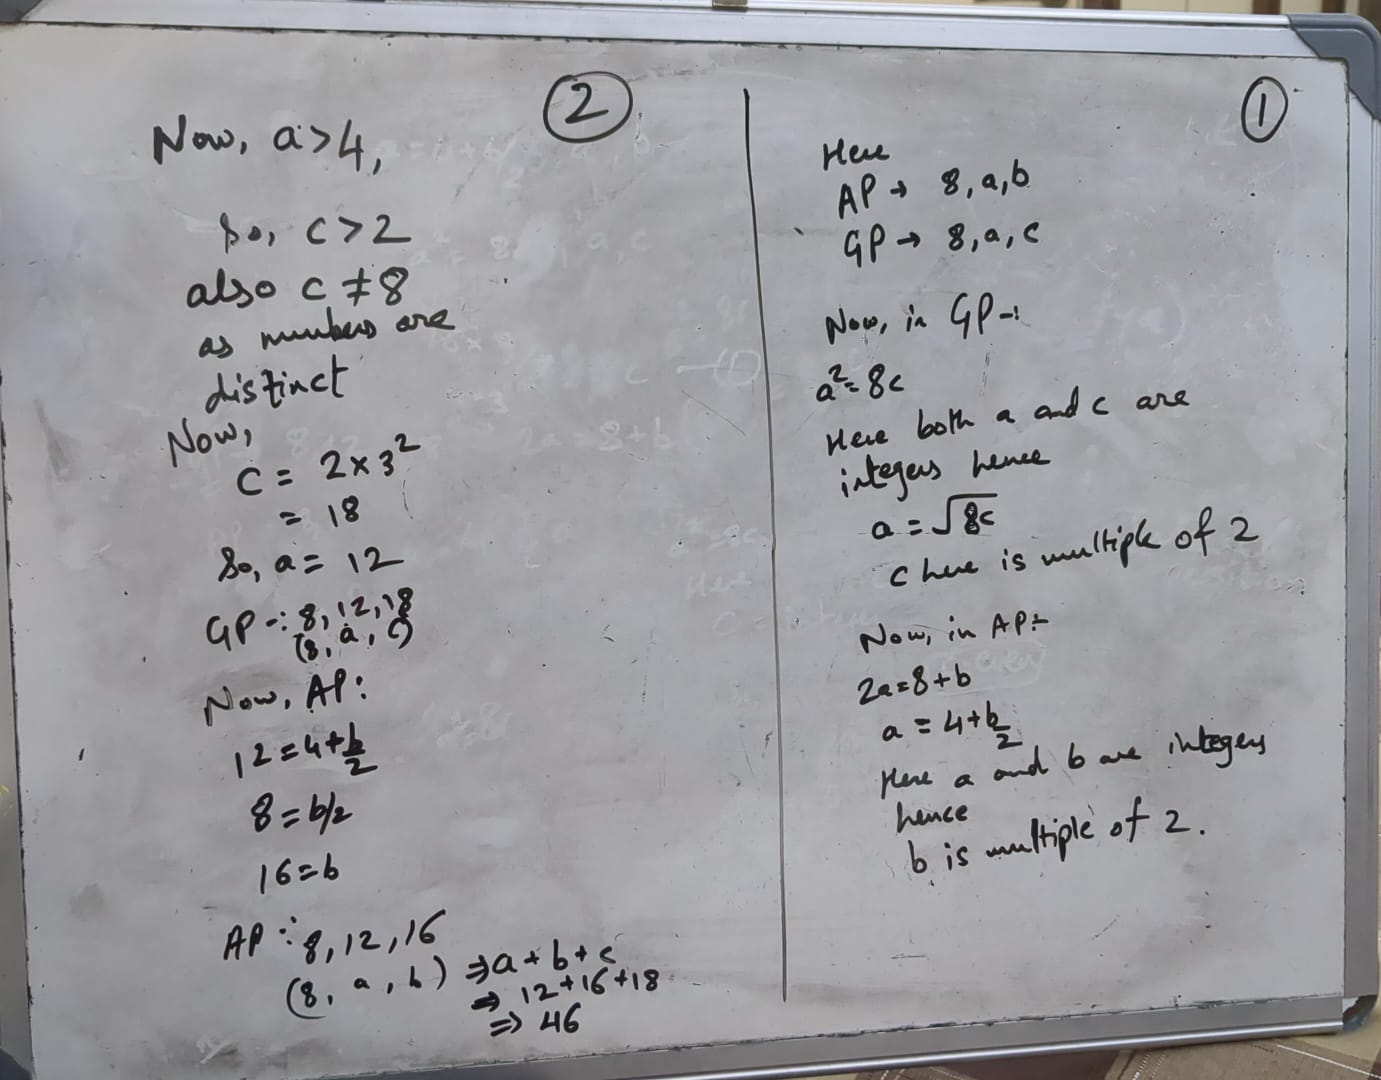 1
Here
AP → 8, a, b
GP → 8, a, c
Now, in GP-:
a² = 8c
Here both a and c are
integers hence
a = √8c
c here is multiple of 2
Now, in AP:-
2a = 8 + b
a = 4 + b/2
Here a and b are integers
hence
b is multiple of 2.
2
Now, a > 4,
So, c > 2
also c ≠ 8
as numbers are
distinct
Now,
c = 2 × 3²
= 18
So, a = 12
GP -: 8, 12, 18
(8, a, c)
Now, AP:
12 = 4 + b/2
8 = b/2
16 = b
AP : 8, 12, 16
(8, a, b) ⇒ a + b + c
⇒ 12 + 16 + 18
⇒ 46